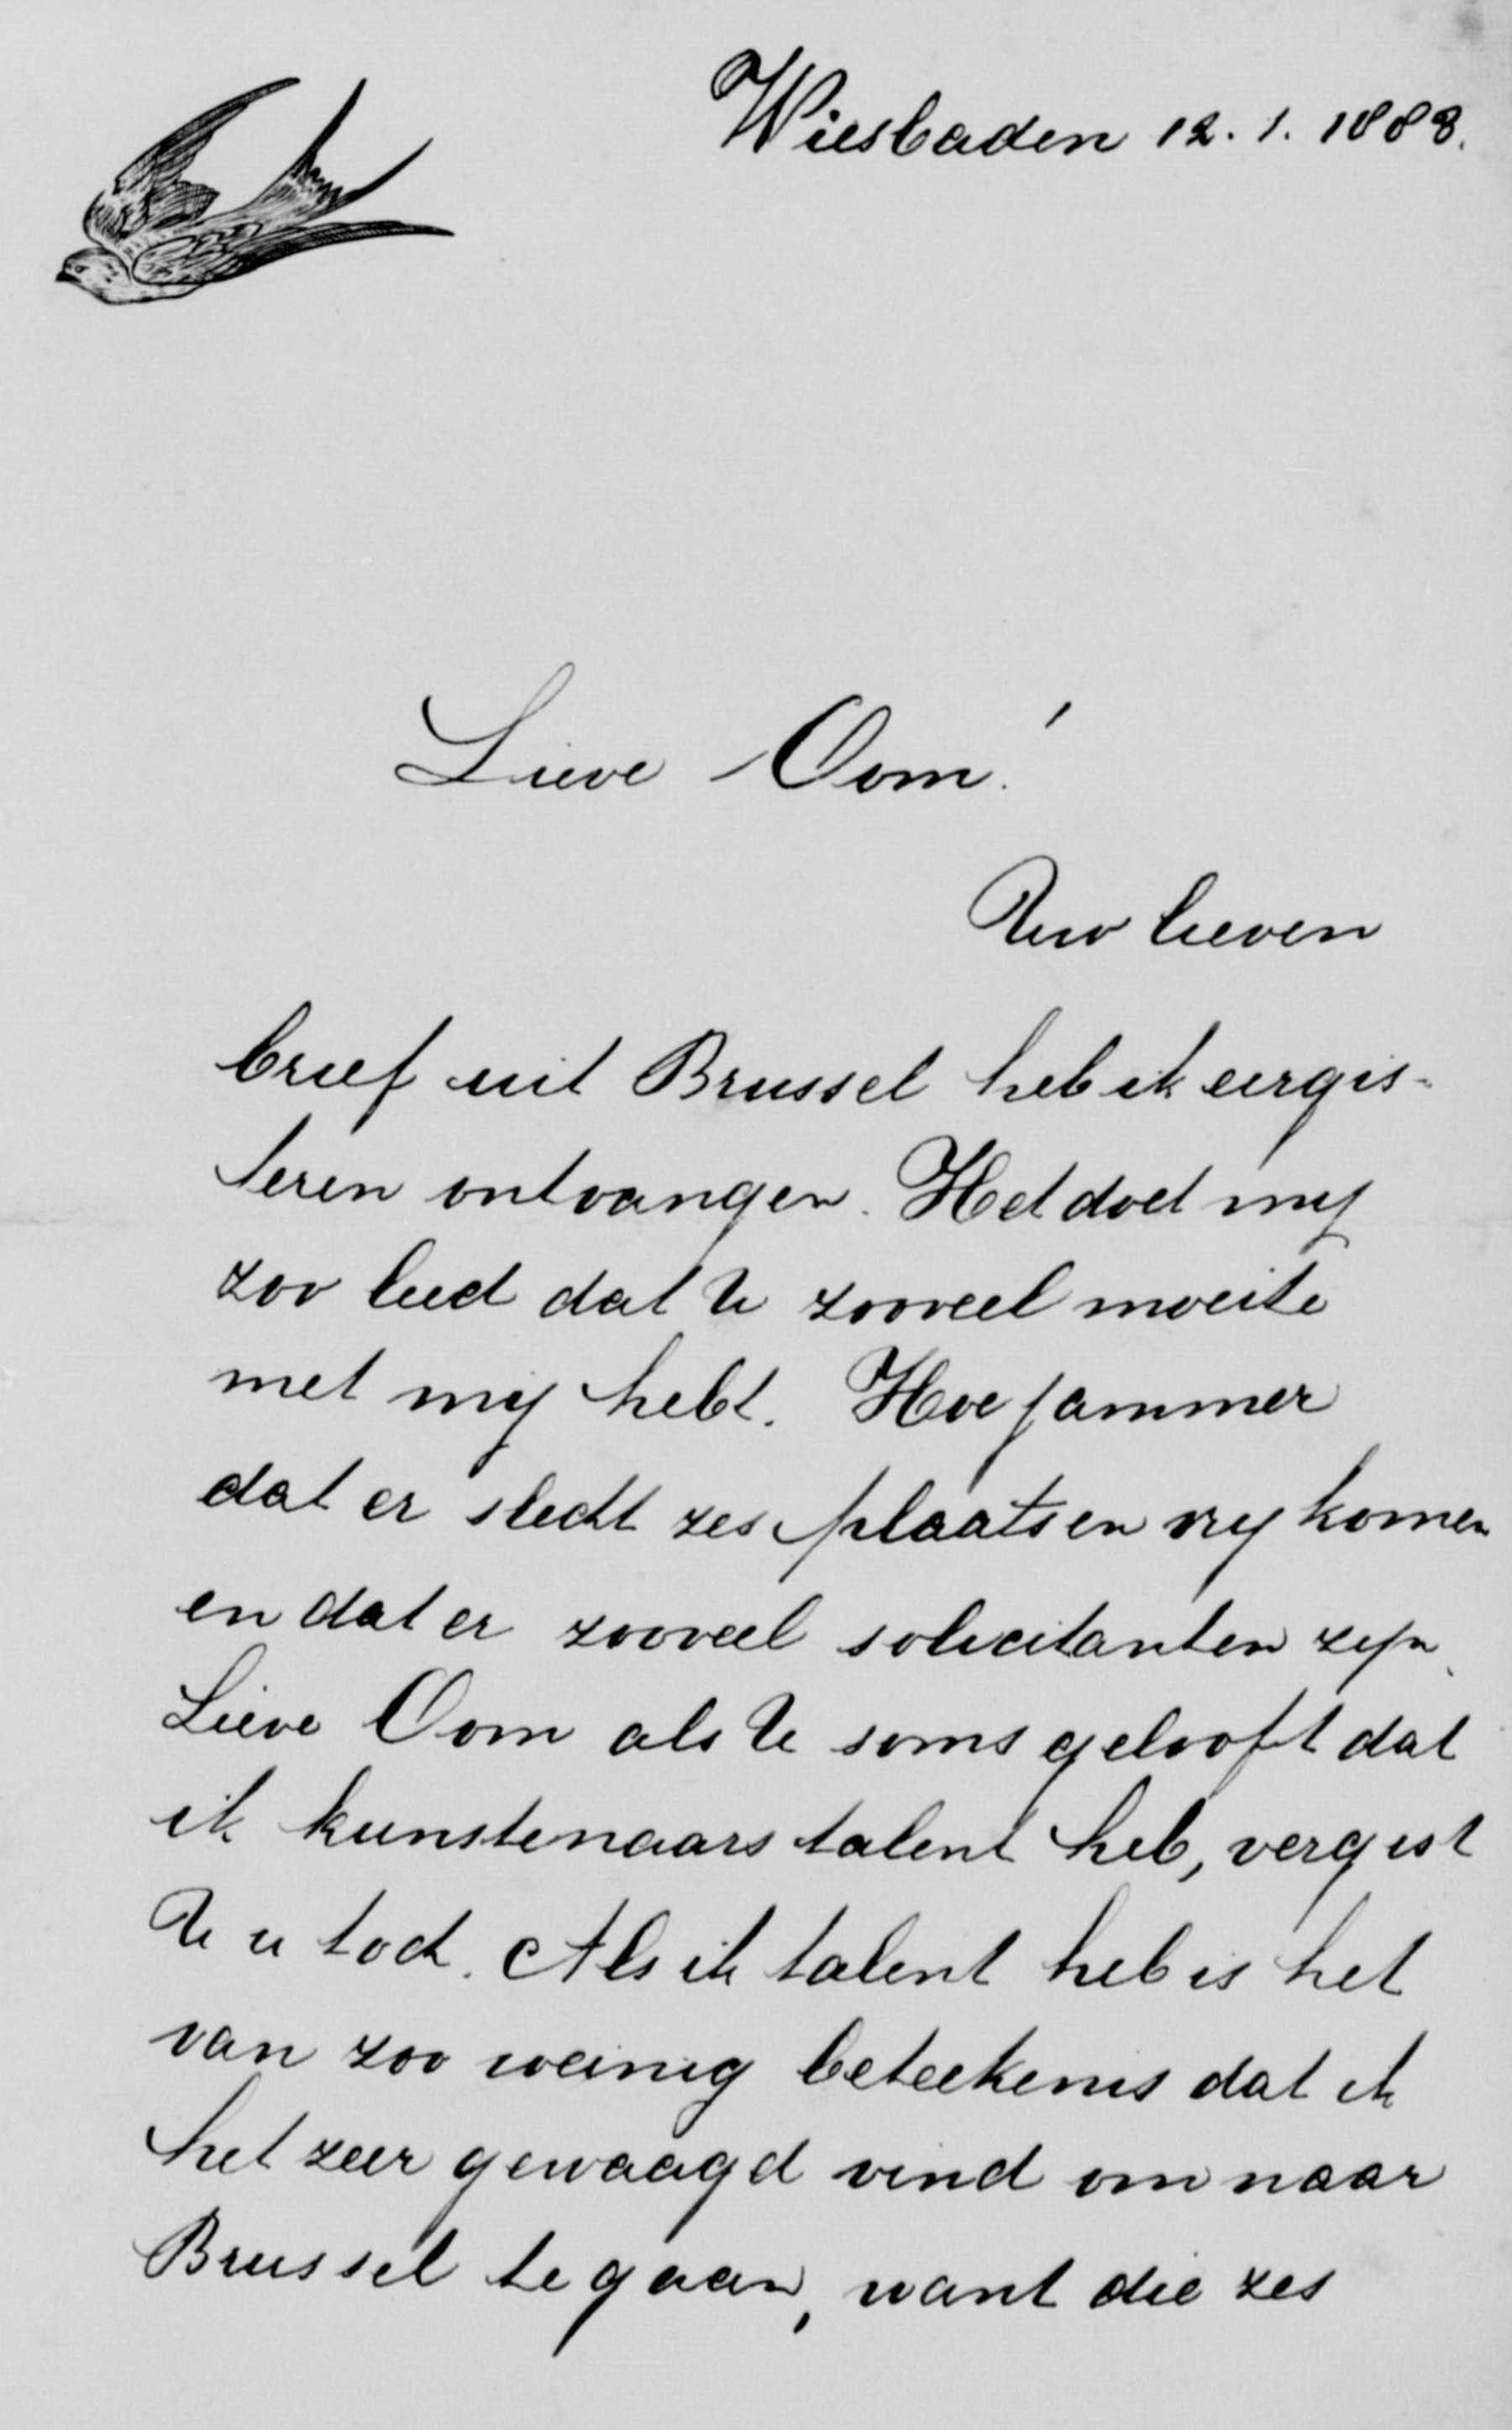 Wiesbaden 12.1.1888.
Lieve Oom!
Uw lieven
brief uit Brussel heb ik eergis-
teren ontvangen. Het doet mij
zoo leed dat U zooveel moeite
met mij hebt. Hoe jammer
dat er slecht zes plaatsen vrij komen
en dat er zooveel solicitanten zijn.
Lieve Oom als U soms gelooft dat
ik kunstenaars talent heb, vergist
U u toch. Als ik talent heb is het
van zoo weinig beteekenis dat ik
het zeer gewaagd vind om naar
Brussel te gaan, want die zes